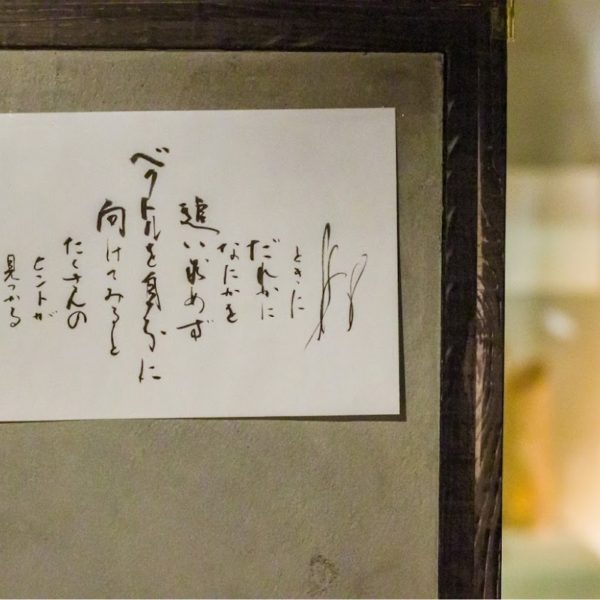 ときに
だれかに
なにかを
追い求めず
ベクトルを自分に
向けてみると
たくさんの
ヒントが
見つかる